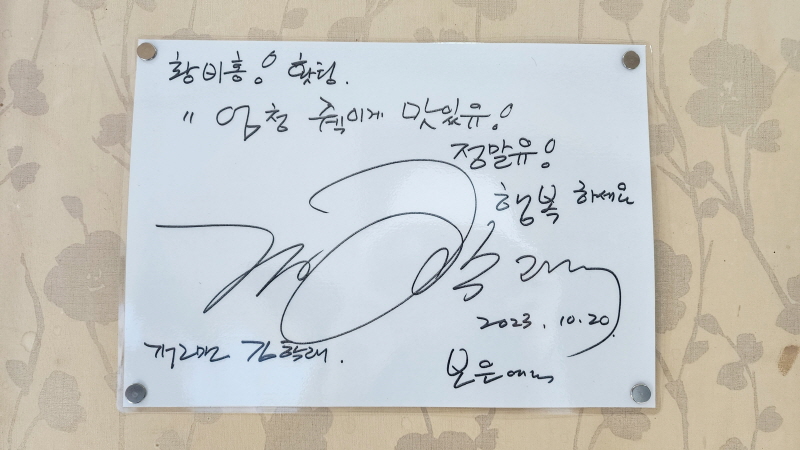 황비홍! 홧팅.
" 엄청 쥑이게 맛있유!
정말유!
행복 하세요
2023. 10.20.
개그맨 김학래.
보은에서